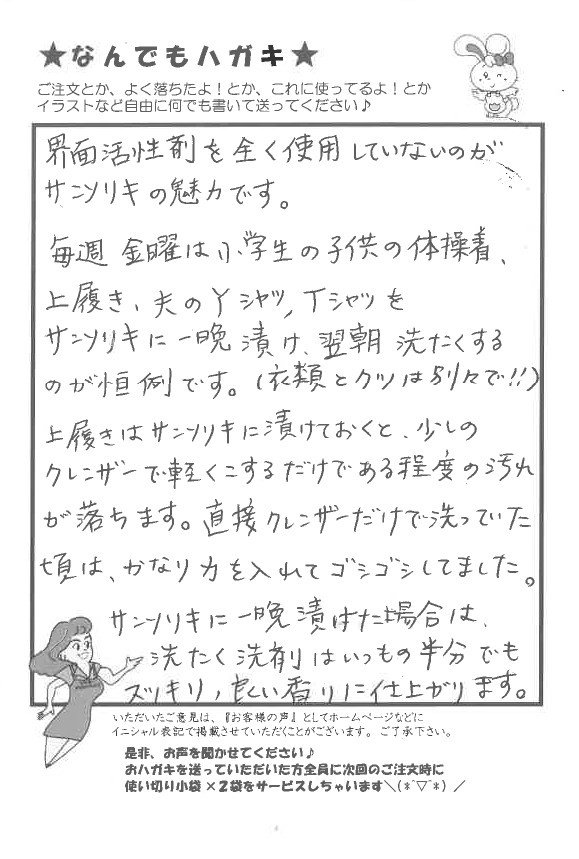 ★なんでもハガキ★
ご注文とか、よく落ちたよ！とか、これに使ってるよ！とか
イラストなど自由に何でも書いて送ってください♪
界面活性剤を全く使用していないのが
サンソリキの魅力です。
毎週 金曜は小学生の子供の体操着、
上履き、夫のYシャツ,Tシャツを
サンソリキに一晩漬け、翌朝 洗たくする
のが恒例です。(衣類とクツは別々で!!)
上履きはサンソリキに漬けておくと、少しの
クレンザーで軽くこするだけである程度の汚れ
が落ちます。直接クレンザーだけで洗っていた
頃は、かなり力を入れてゴシゴシしてました。
サンソリキに一晩漬けた場合は、
洗たく洗剤はいつもの半分でも
スッキリ,良い香りに仕上がります。
いただいたご意見は、『お客様の声』としてホームページなどに
イニシャル表記で掲載させていただくことがございます。ご了承下さい。
是非、お声を聞かせてください♪
おハガキを送っていただいた方全員に次回のご注文時に
使い切り小袋×2袋をサービスしちゃいます＼(*´▽`*)／